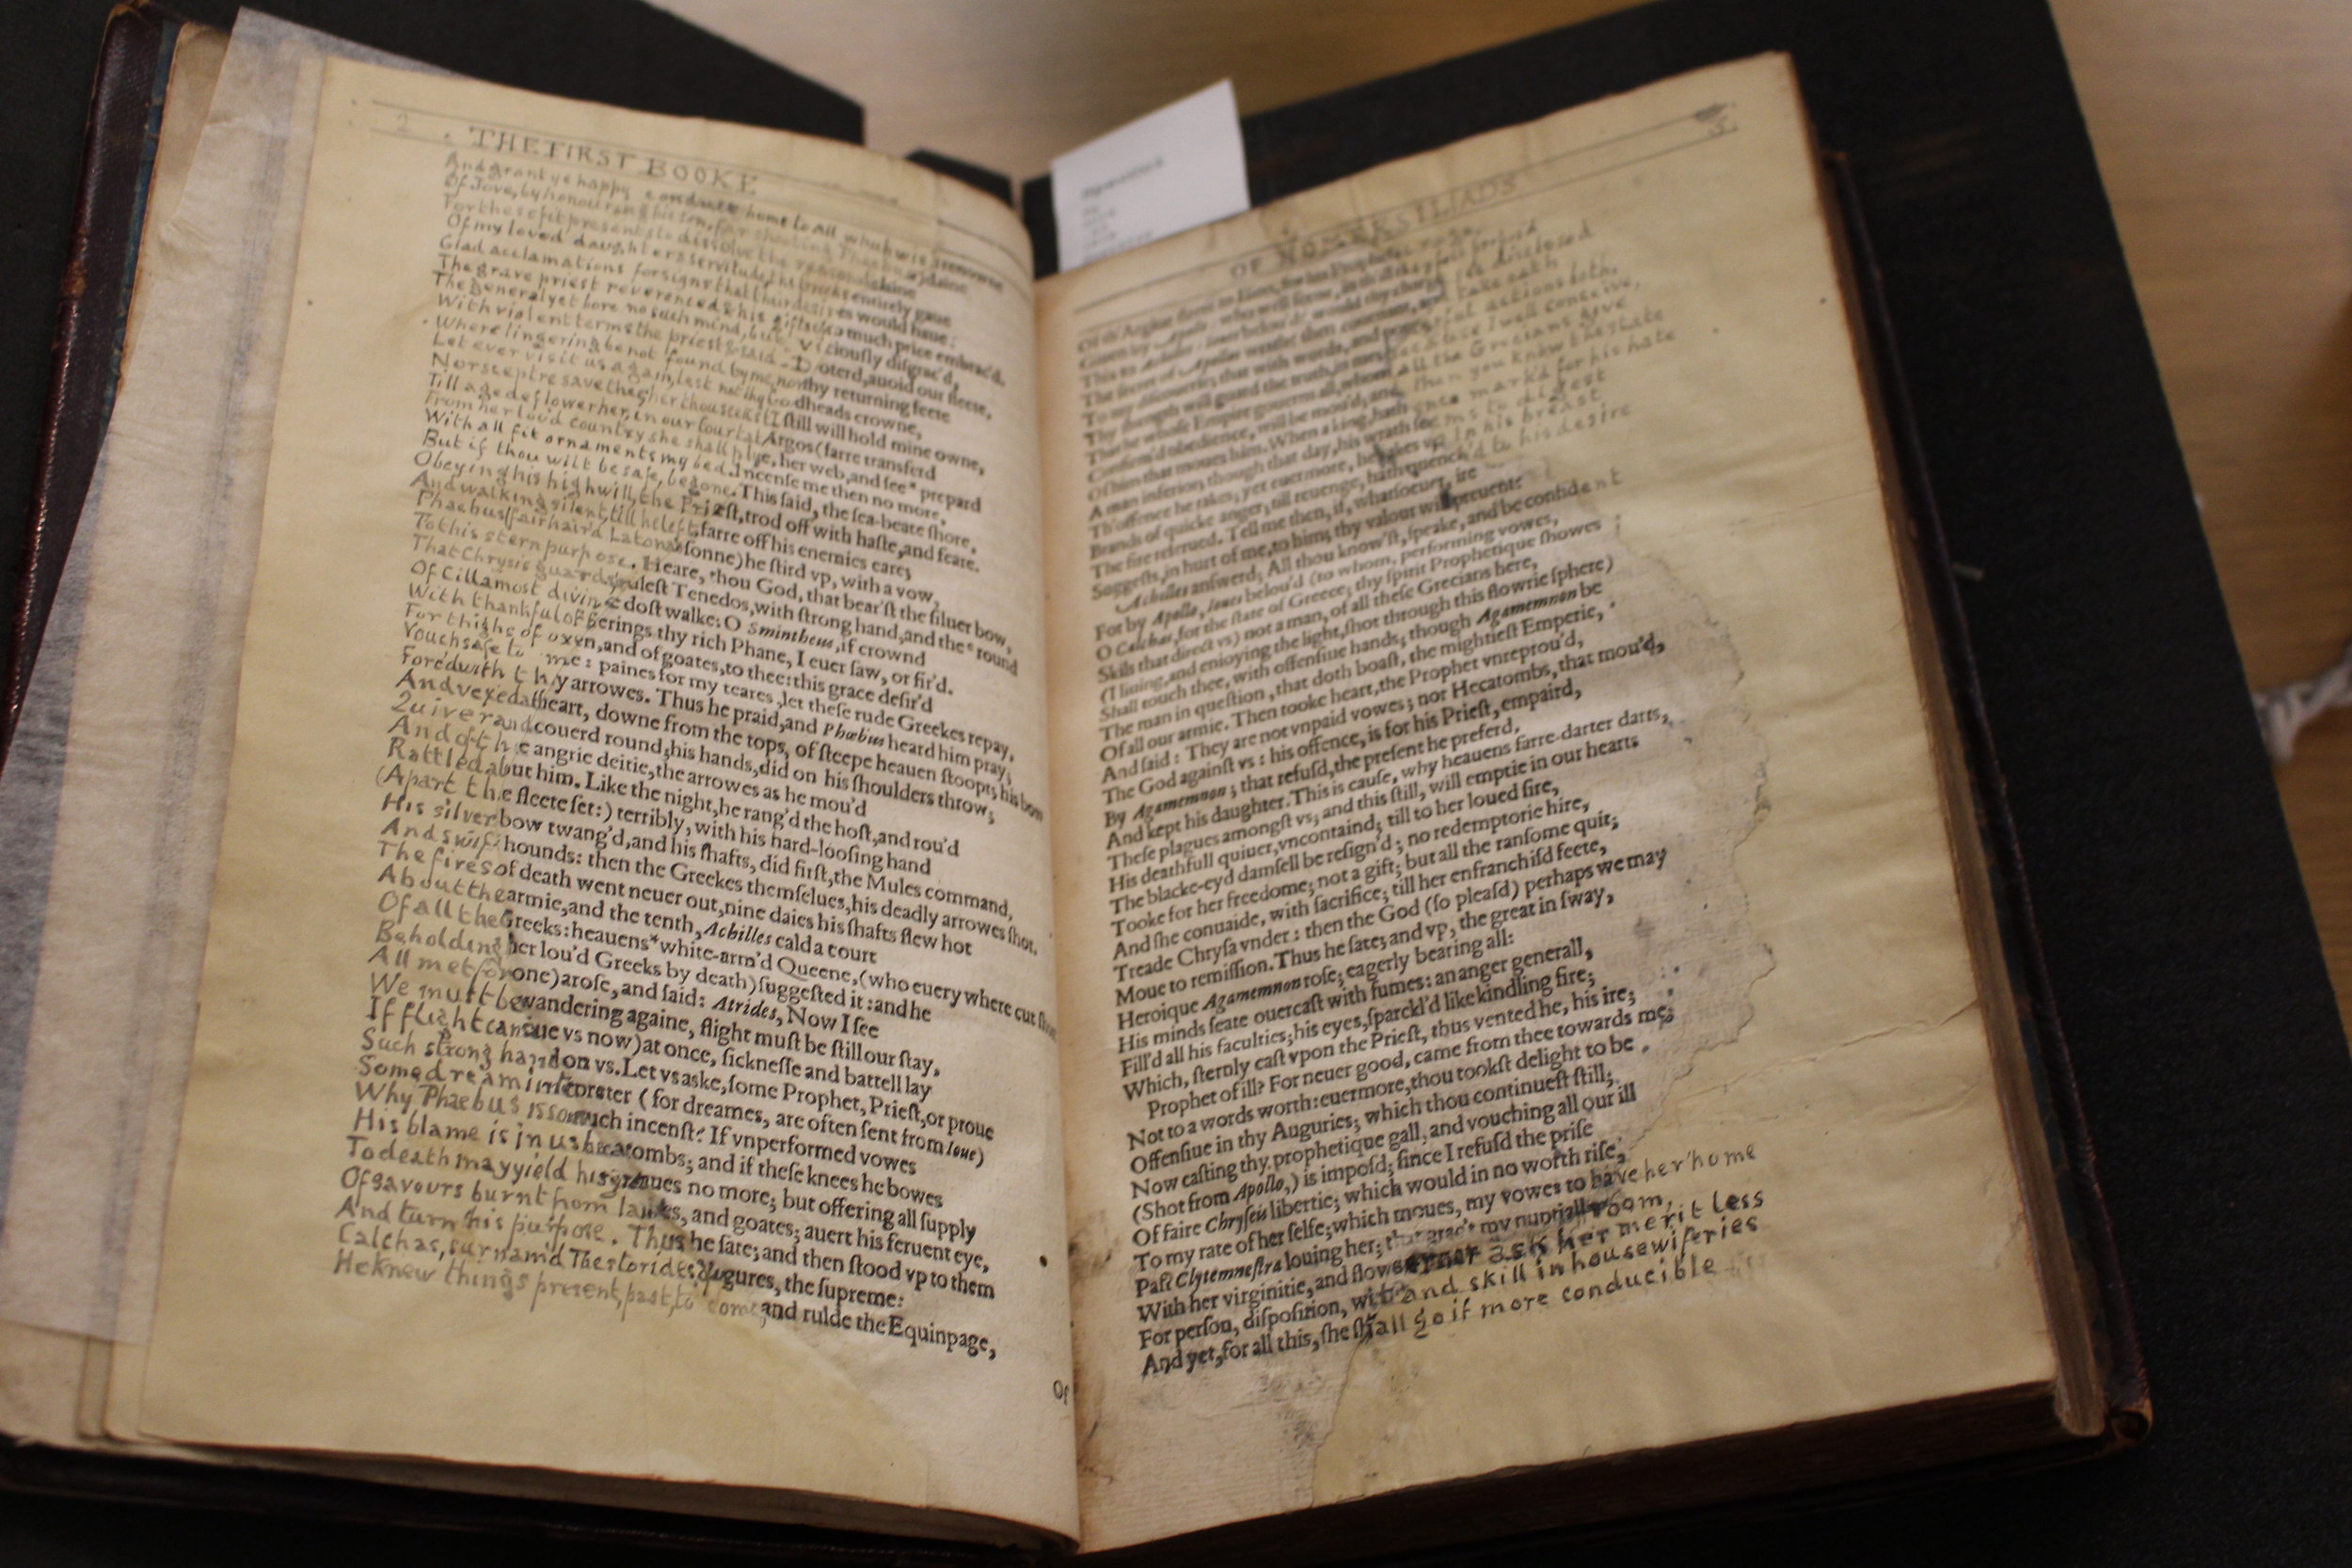 2
THE FIRST BOOKE
And grant ye happy conduct home to all which wise
Of Jove, by honouring his son, far shooting
For these fit presents to dissolve the
Of my loved daughters servitude, the
Glad acclamations for signs that their desires would haue:
The grave priest reverenced & his gifts of so much price embrac'd.
The general yet bore no such mind, but viciouſly diſgrac'd,
With violent terms the priest & said: Doterd, auoid our fleete,
Where lingering be not found by me, nor thy returning feete
Let ever visit us again, lest nor thy Godheads crowne,
Nor sceptre save thee, her thou seekst I ſtill will hold mine owne,
Till age deflower her, in our court at Argos (farre transferd
From her lov'd country she shall plye, her web, and ſee* prepard
With all fit ornaments my bed. Incenſe me then no more,
But if thou wilt be safe, be gone. This ſaid, the ſea-beate ſhore,
Obeying his high will, the Prieſt, trod off with haſte, and feare.
And walking silent, till he left farre off his enemies eare;
Phaebus (fairhaird Latonas ſonne) he ſtird vp, with a vow,
To this stern purpose. Heare, thou God, that bear'ſt the ſiluer bow,
That Chrysis guardst, ruleſt Tenedos, with ſtrong hand, and the* round
Of Cilla most divine doſt walke: O Smintheus, if crownd
With thankful offerings thy rich Phane, I euer ſaw, or fir'd.
For thighs of oxen, and of goates, to thee: this grace deſir'd
Vouchsafe to me: paines for my teares, let theſe rude Greekes repay,
Forc'd with thy arrowes. Thus he praid, and Phœbus heard him pray;
And vexed at heart, downe from the tops, of ſteepe heauen ſtoopt; his bow
Quiver and couerd round; his hands, did on his ſhoulders throw;
And of the angrie deitie, the arrowes as he mou'd
Rattled about him. Like the night, he rang'd the hoſt, and rou'd
(Apart the fleete ſet:) terribly, with his hard-looſing hand
His silver bow twang'd, and his ſhafts, did firſt, the Mules command,
And swift hounds: then the Greekes themſelues, his deadly arrowes ſhot.
The fires of death went neuer out, nine daies his ſhafts flew hot
About the armie, and the tenth, Achilles cald a court
Of all the Greeks: heauens* white-arm'd Queene, (who euery where cut ſhort
Beholding her lou'd Greeks by death) ſuggeſted it: and he
All met for one) aroſe, and ſaid: Atrides, Now I ſee
We must be wandering againe, flight muſt be ſtill our ſtay,
If flight can ſaue vs now) at once, ſickneſſe and battell lay
Such strong hand on vs. Let vs aske, ſome Prophet, Prieſt, or proue
Some dream interpreter (for dreames, are often ſent from Ioue)
Why Phaebus is so much incenſt? If vnperformed vowes
His blame is in us hecatombs; and if theſe knees he bowes
To death may yield his graues no more; but offering all ſupply
Of savours burnt from lambes, and goates; auert his feruent eye,
And turn his purpose. Thus he ſate; and then ſtood vp to them
Calchas, surnam'd Thestorides, Augures, the ſupreme:
He knew things present, past, to come, and rulde the Equinpage,
Of
OF HOMERS ILIADS
3
Giuen by Apollo: who well ſeene, in th'
This to Achilles: Ioues belou'd: would thy charge see disclosed
The ſecret of Apollos wrath? then couenant, and take oath
To my diſcouerie; that with words, and powerful actions both,
Thy ſtrength will guard the truth, in me; because I well conceive,
That he whoſe Empire gouerns all, whom all the Grecians give
Confirm'd obedience, will be mou'd; and then you know the state
Of him that moues him. When a king, hath once markd for his hate
A man inferior, though that day, his wrath seems to digest
Th'offence he takes; yet euermore, he rakes vp in his breast
Brands of quicke anger; till reuenge, hath quencht to his desire
The fire reſerued. Tell me then, if, whatſoeuer, ire
Suggeſts, in hurt of me, to him; thy valour will preuent?
Achilles anſwerd; All thou know'ſt, ſpeake, and be confident
For by Apollo, Ioues belou'd (to whom, performing vowes,
O Calchas, for the ſtate of Greece; thy ſpirit Prophetique ſhowes
Skils that direct vs) not a man, of all theſe Grecians here,
(I liuing, and enioying the light, ſhot through this flowrie ſphere)
Shall touch thee, with offenſiue hands; though Agamemnon be
The man in queſtion, that doth boaſt, the mightieſt Emperie,
Of all our armie. Then tooke heart, the Prophet vnreprou'd,
And ſaid: They are not vnpaid vowes; nor Hecatombs, that mou'd,
The God againſt vs: his offence, is for his Prieſt, empaird,
By Agamemnon; that refuſd, the preſent he preferd.
And kept his daughter. This is cauſe, why heauens farre-darter darts,
Theſe plagues amongſt vs; and this ſtill, will emptie in our hearts
His deathfull quiuer, vncontaind; till to her loued ſire,
The blacke-eyd damſell be reſign'd; no redemptorie hire,
Tooke for her freedome; not a gift; but all the ranſome quit;
And ſhe conuaide, with ſacrifice; till her enfranchiſd feete,
Treade Chryſa vnder: then the God (ſo pleaſd) perhaps we may
Moue to remiſſion. Thus he ſate; and vp, the great in ſway,
Heroique Agamemnon roſe; eagerly bearing all:
His minds ſeate ouercaſt with fumes: an anger generall,
Fill'd all his faculties; his eyes, ſparckl'd like kindling fire;
Which, ſternly caſt vpon the Prieſt, thus vented he, his ire;
Prophet of ill? For neuer good, came from thee towards me;
Not to a words worth: euermore, thou tookſt delight to be
Offenſiue in thy Auguries; which thou continueſt ſtill;
Now caſting thy prophetique gall, and vouching all our ill
(Shot from Apollo,) is impoſd; ſince I refuſd the priſe
Of faire Chryſeis libertie; which would in no worth riſe,
To my rate of her ſelfe; which moues, my vowes to have her home
Paſt Clytemneſtra louing her; that grac't my nuptiall room,
With her virginitie, and flower ask her merit less
For perſon, diſpoſition, wit and skill in housewiferies
And yet, for all this, ſhe ſhall go if more conducible